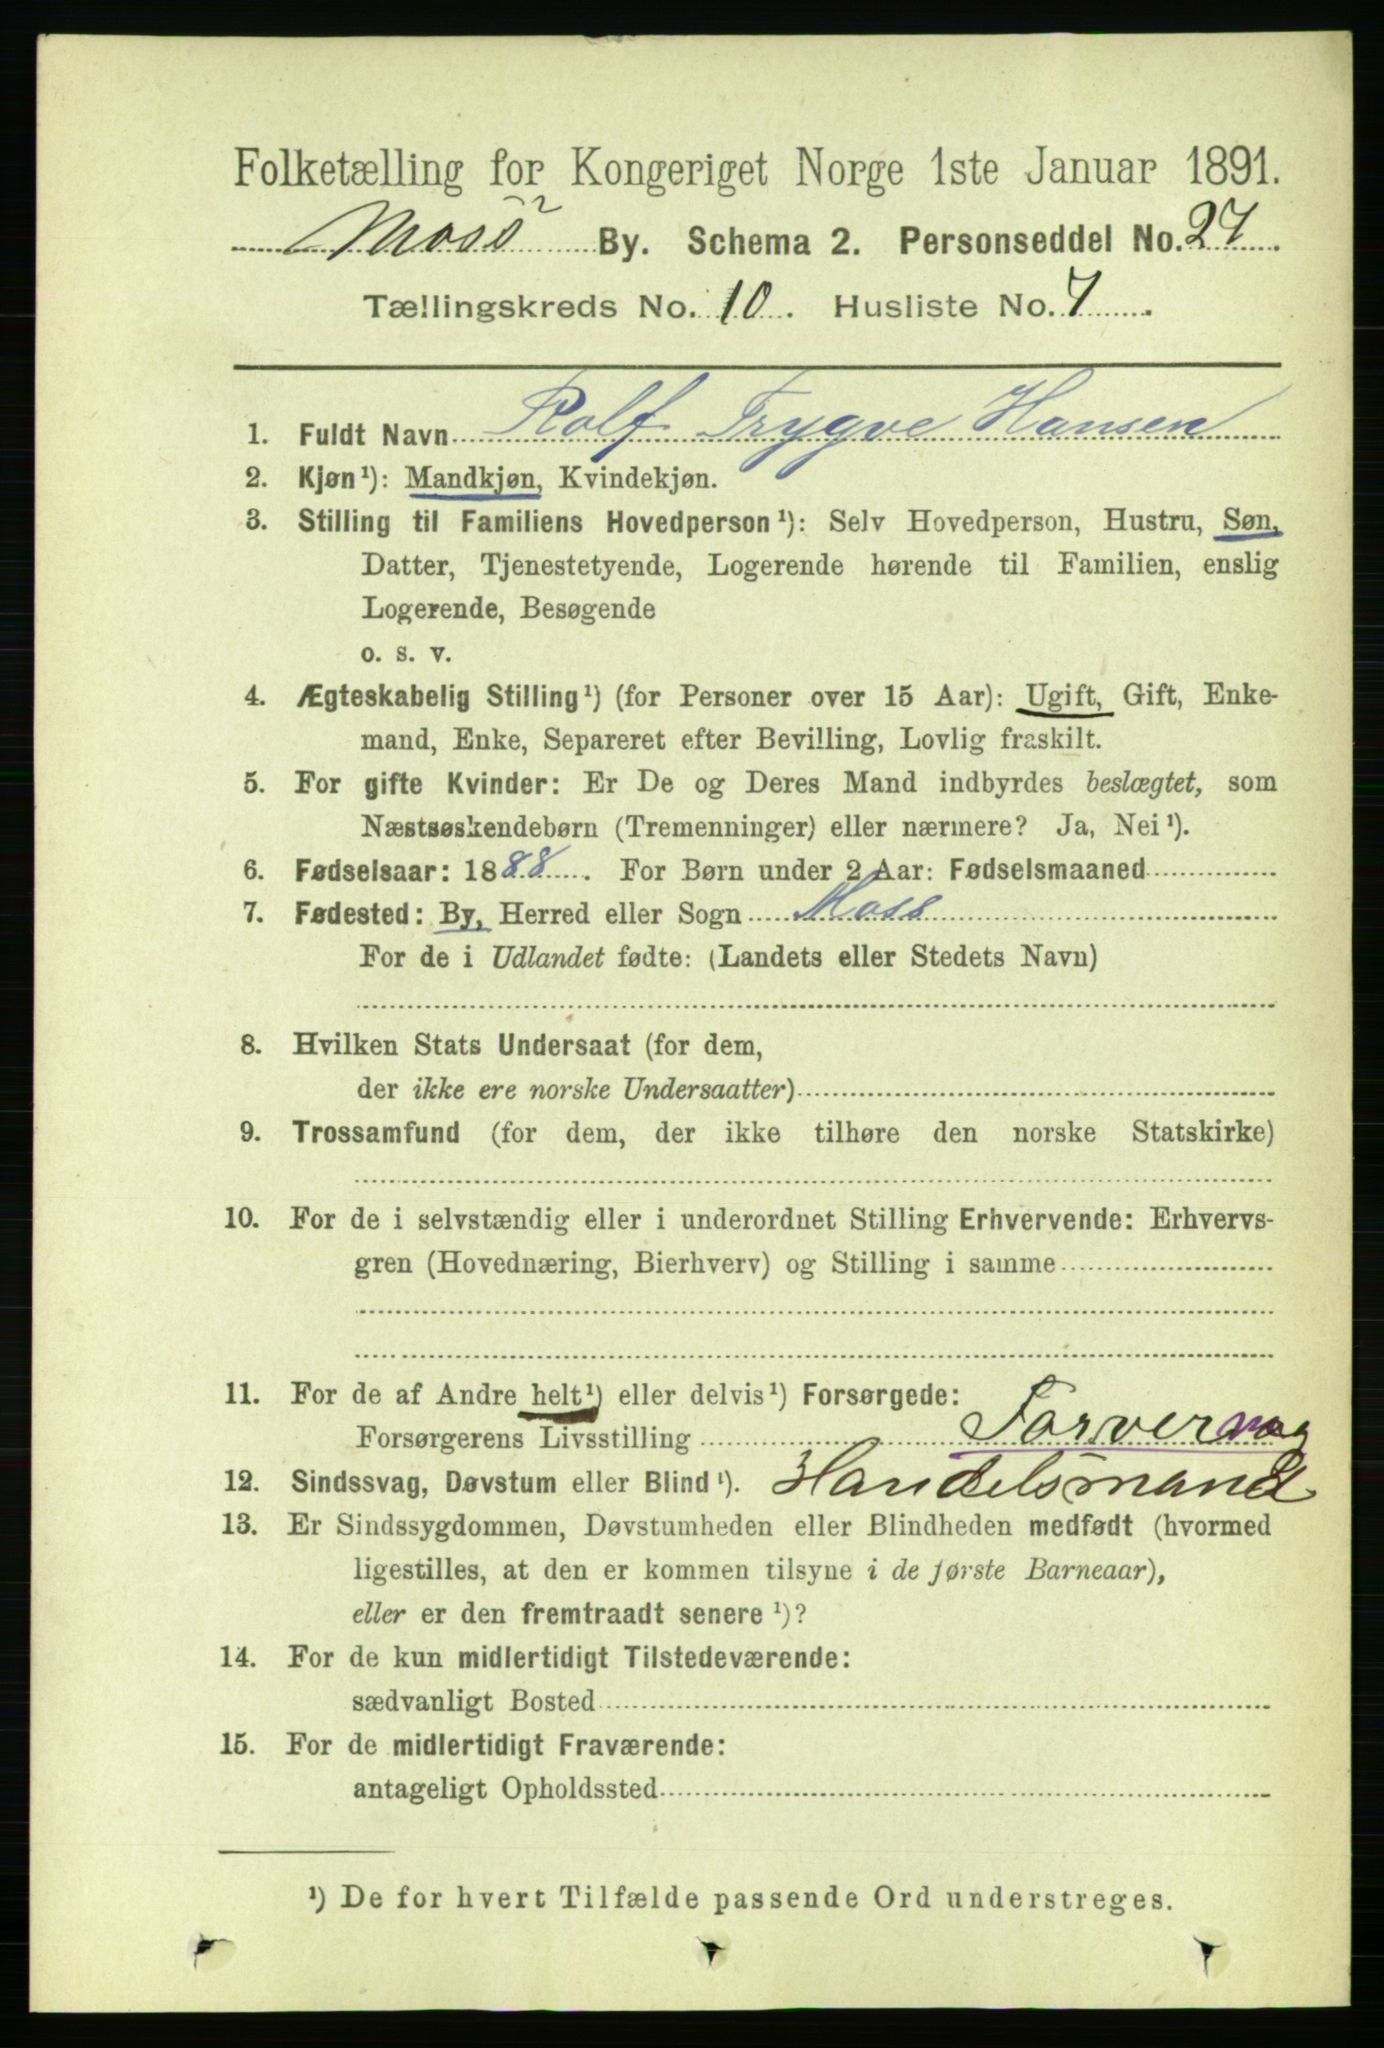 Folketælling for Kongeriget Norge 1ste Januar 1891.
Moss 2 By. Schema 2. Personseddel No. 27.
Tællingskreds No. 10. Husliste No. 7.
1. Fuldt Navn Rolf Trygve Hansen
2. Kjøn ¹): Mandkjøn, Kvindekjøn.
3. Stilling til Familiens Hovedperson ¹): Selv Hovedperson, Hustru, Søn,
Datter, Tjenestetyende, Logerende hørende til Familien, enslig
Logerende, Besøgende
o. s. v.
4. Ægteskabelig Stilling ¹) (for Personer over 15 Aar): Ugift, Gift, Enke-
mand, Enke, Separeret efter Bevilling, Lovlig fraskilt.
5. For gifte Kvinder: Er De og Deres Mand indbyrdes beslægtet, som
Næstsøskendebørn (Tremenninger) eller nærmere? Ja, Nei ¹).
6. Fødselsaar: 1888. For Børn under 2 Aar: Fødselsmaaned
7. Fødested: By, Herred eller Sogn Moss
For de i Udlandet fødte: (Landets eller Stedets Navn)
8. Hvilken Stats Undersaat (for dem,
der ikke ere norske Undersaatter)
9. Trossamfund (for dem, der ikke tilhøre den norske Statskirke)
10. For de i selvstændig eller i underordnet Stilling Erhvervende: Erhvervs-
gren (Hovednæring, Bierhverv) og Stilling i samme
11. For de af Andre helt ¹) eller delvis ¹) Forsørgede:
Forsørgerens Livsstilling Farver og
12. Sindssvag, Døvstum eller Blind ¹). Handelsmand
13. Er Sindssygdommen, Døvstumheden eller Blindheden medfødt (hvormed
ligestilles, at den er kommen tilsyne i de første Barneaar),
eller er den fremtraadt senere ¹)?
14. For de kun midlertidigt Tilstedeværende:
sædvanligt Bosted
15. For de midlertidigt Fraværende:
antageligt Opholdssted
¹) De for hvert Tilfælde passende Ord understreges.